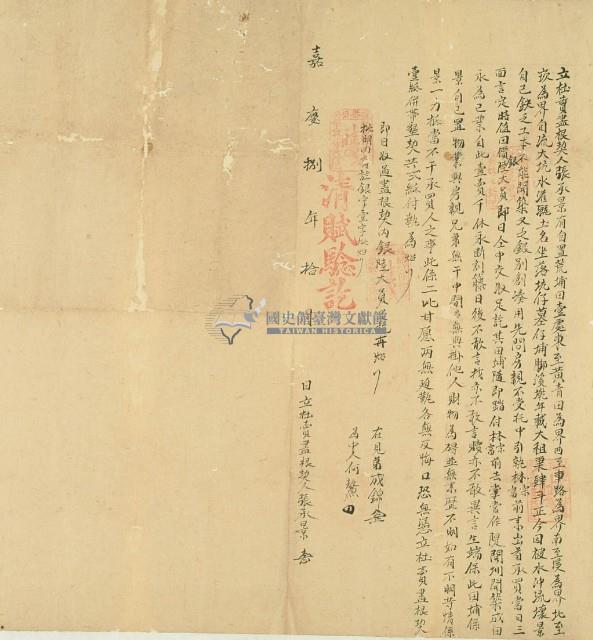 立杜賣盡根契人張承景有自置荒埔田壹處東至黃青田為界西至車路為界南至園為界北至
崁為界自流大坑水灌溉土名坐落坑仔墓仔埔腳溪墘年載大租粟肆斗正今因被水沖流壞景
自己缺乏工本不能開築又乏銀別創湊用先問房親不受托中引就林宗富前來出首承買當日三
面言定時值田價銀陸大員即日仝中交收足訖其田埔隨即踏付林宗富前去掌管作墾開圳開築成田
永為己業自此壹賣千休永斷割藤日後不敢言找亦不敢言贖亦不敢異言生端保此田埔係
景自己置物業與房親兄弟無干中間亦無典掛他人財物為碍並無來歷不明如有不明等情係
景一力抵當不干承買人之事此係二比甘愿兩無迫勒各無反悔口恐無憑立杜賣盡根契
壹紙併帶墾契共弍紙付執為炤
即日收過盡根契內銀陸大員足訖再炤
批明內註銀字壹字批炤
在見弟成錦
為中人何鰲
嘉慶捌年拾月 日立杜賣盡根契人張承景
清賦驗訖
國史館臺灣文獻館
TAIWAN HISTORICA